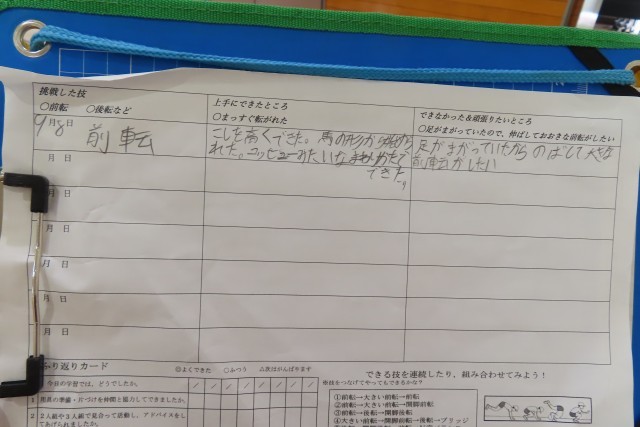 挑戦した技
○前転　○後転など
上手にできたところ
○まっすぐ転がれた
できなかった＆頑張りたいところ
○足がまがっていたので、伸ばしておおきな前転がしたい
9月8日
前転
こしを高くできた。馬の形から
れた。
できた。
足がまがっていたからのばして大きな
前転がしたい
月　日
月　日
月　日
月　日
月　日
月　日
ふり返りカード
◎よくできた　○ふつう　△次はがんばります
今日の学習では、どうでしたか。
1 用具の準備・片づけを仲間と協力してできましたか。
2 2人組や3人組で見合って活動し、アドバイスをし
てあげられましたか。
できる技を連続したり、組み合わせてみよう！
技をつなげてやってもできるかな？
①前転→大きい前転→前転
②前転→大きい前転→開脚前転
③前転→後転→開脚後転
④大きい前転→開脚前転→後転→ブリッジ